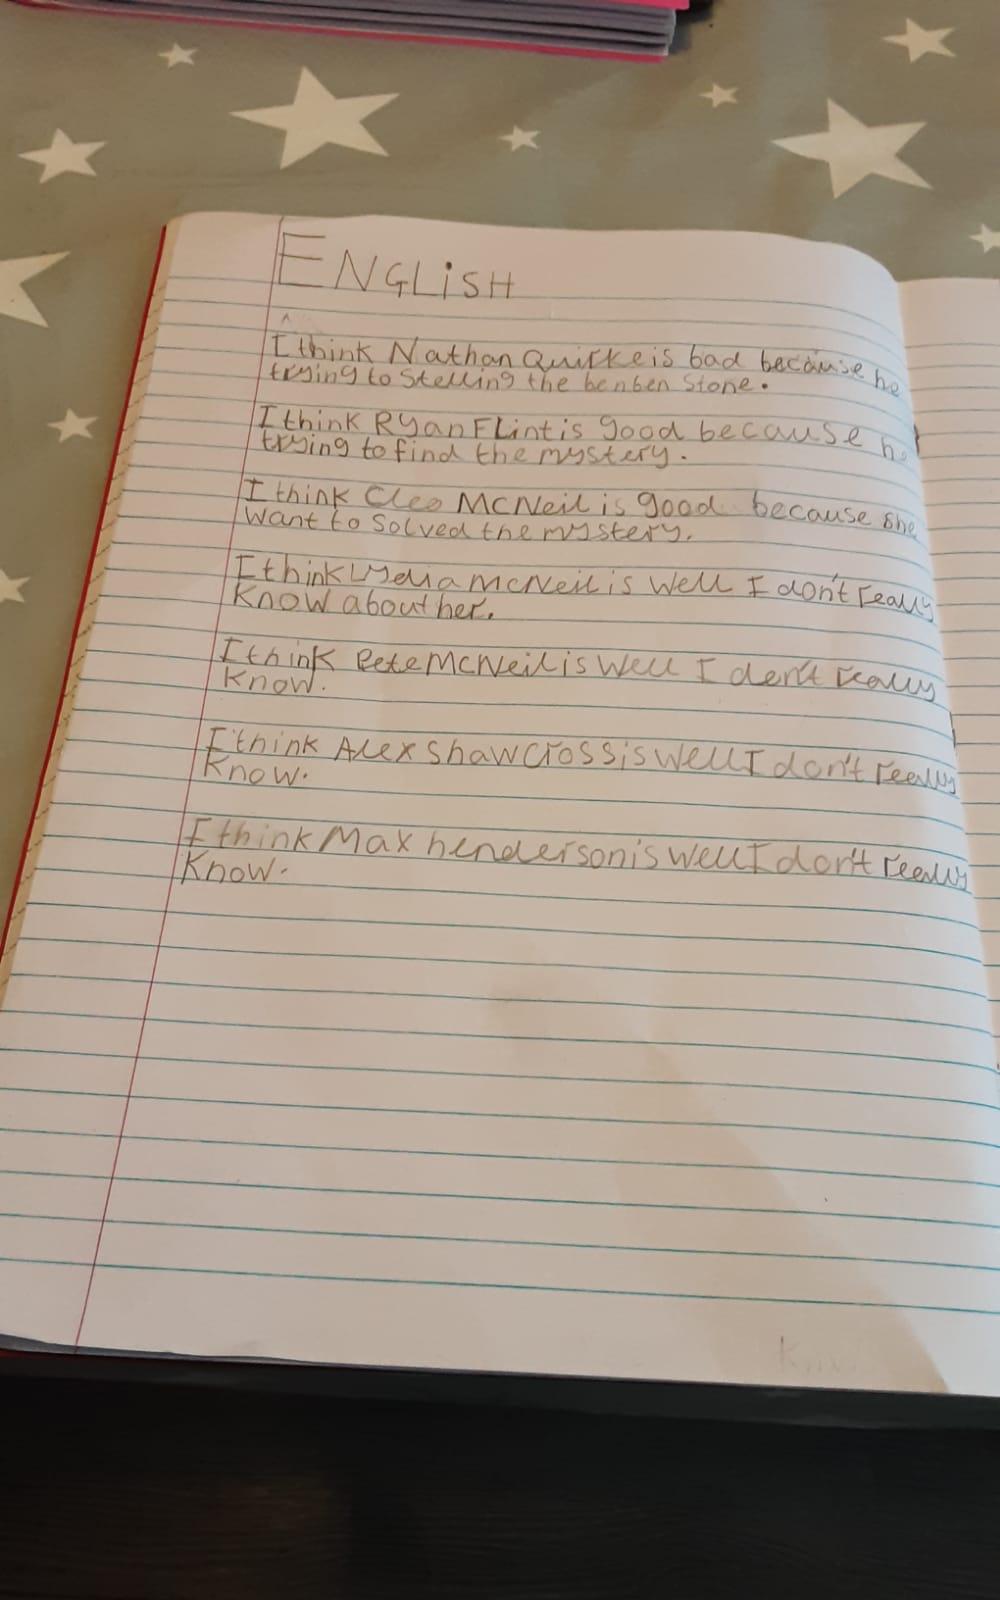 ENGLiSH
I think Nathan Quirke is bad because he
trying to Stelling the benben Stone.
I think Ryan Flint is good because he
trying to find the mystery.
I think Cleo McNeil is good because she
want to solved the mystery.
I think Lydia McNeil is well I don't really
know about her.
I think Pete McNeil is well I don't really
know.
I think Alex Shawcross is well I don't really
know.
I think Max hendersonis well I don't really
know.